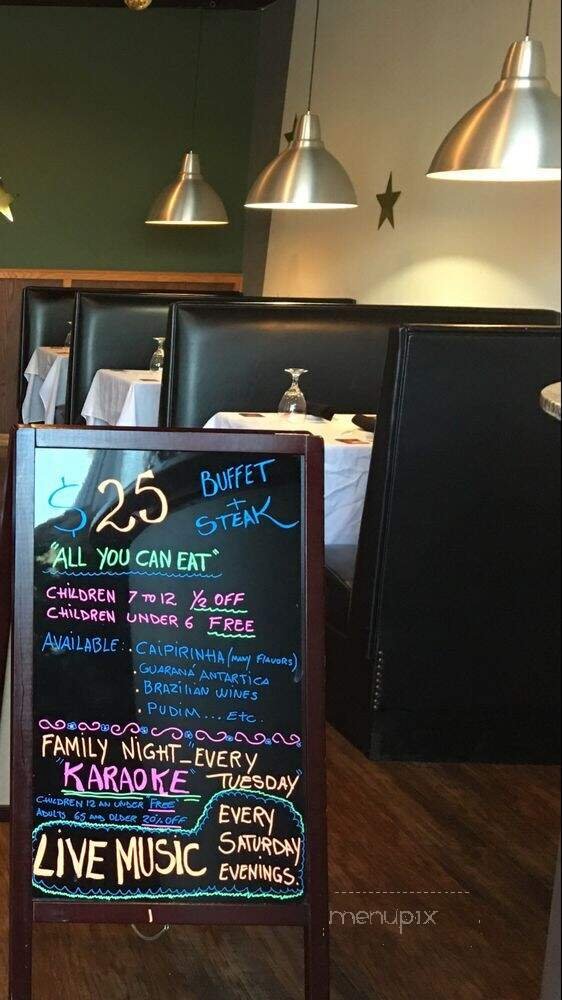 $25 BUFFET
+
STEAK
"ALL YOU CAN EAT"
CHILDREN 7 TO 12 1/2 OFF
CHILDREN UNDER 6 FREE
AVAILABLE: . CAIPIRINHA (MANY FLAVORS)
. GUARANÁ ANTARTICA
. BRAZILIAN WINES
. PUDIM... ETC.
FAMILY NIGHT_EVERY
"KARAOKE" TUESDAY"
CHILDREN 12 AN UNDER FREE
ADULTS 65 AND OLDER 20% OFF
LIVE MUSIC EVERY
SATURDAY
EVENINGS.
menupix